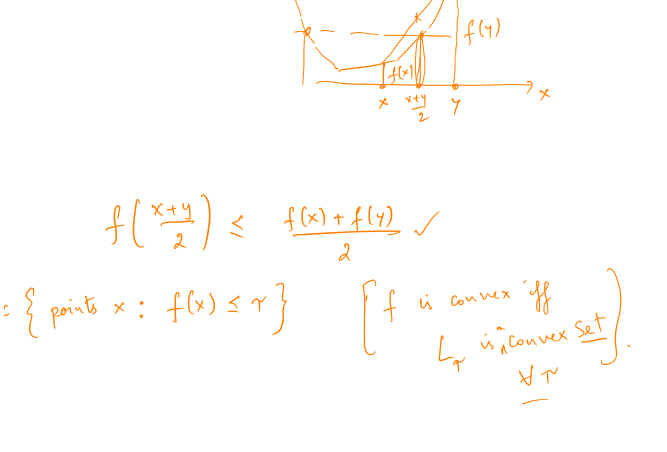 f(y)
f(x)
x
x+y/2
y
x
f(x+y/2) ≤ f(x) + f(y)/2 ✓
= { points x : f(x) ≤ τ }
[ f is convex iff
L_τ is a convex set ].
∀ τ